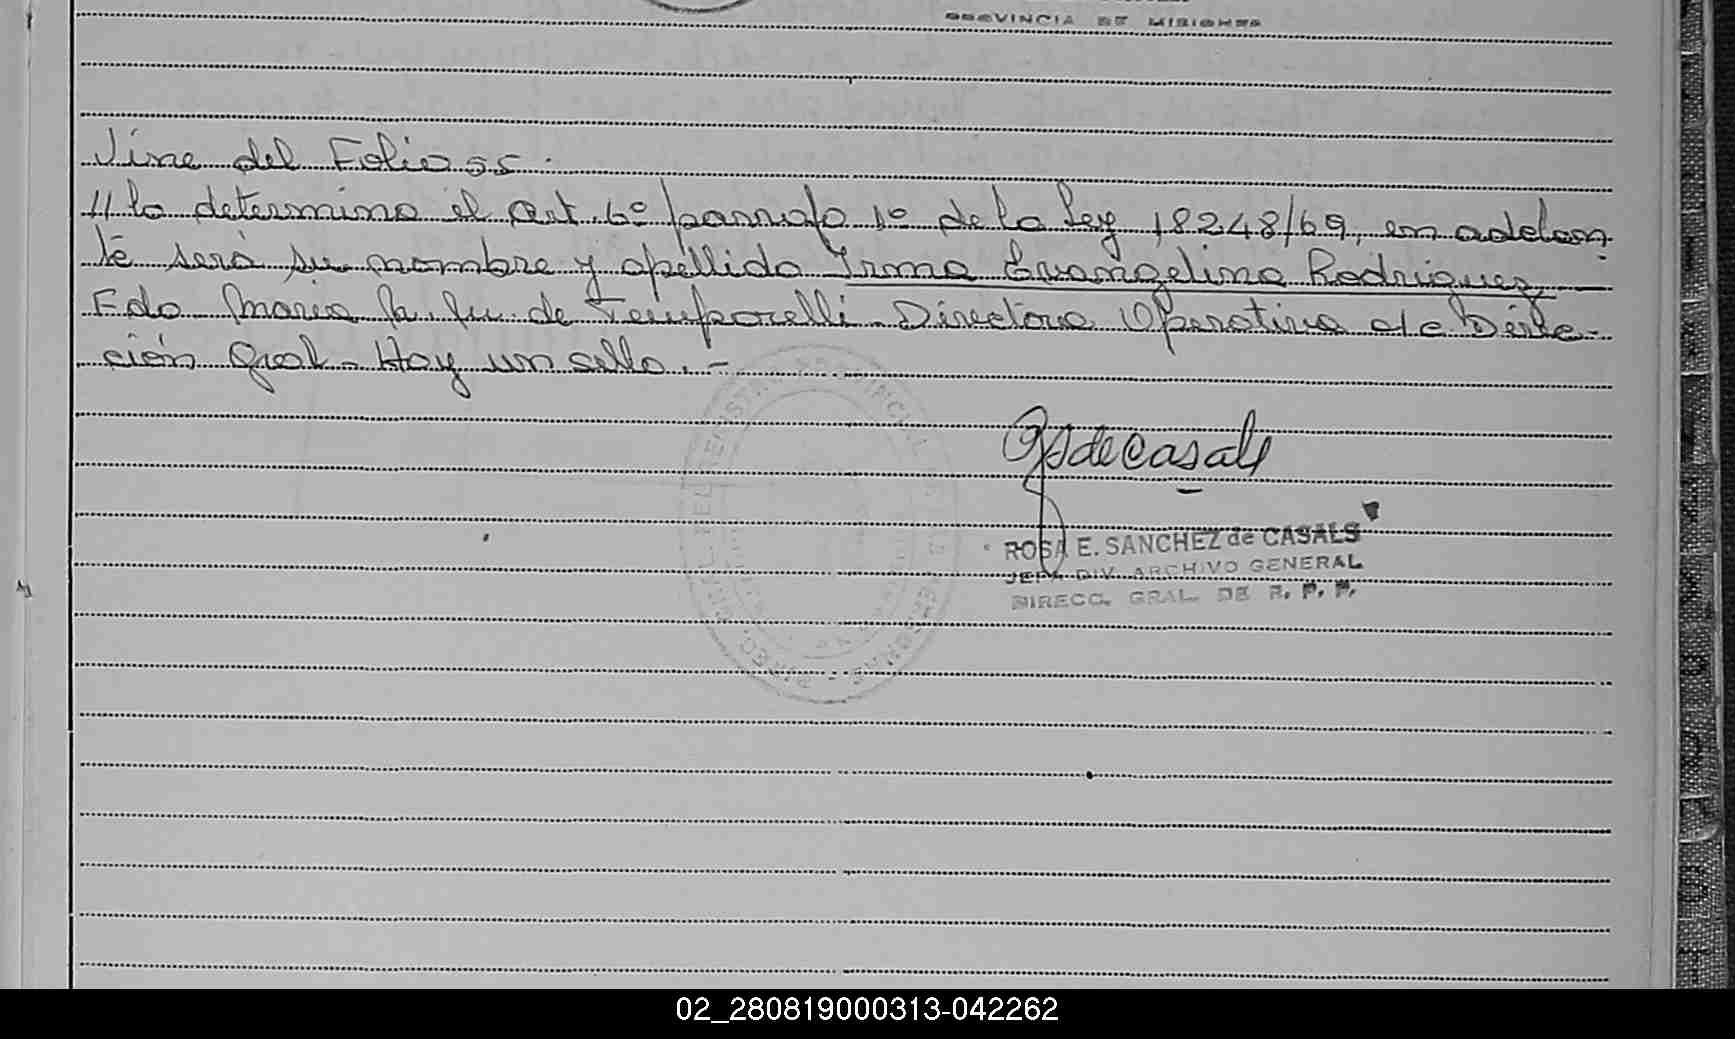 PROVINCIA DE MISIONES
Viene del Folio 55.
//lo determina el art. 6º parrafo 1º de la Ley 18248/69, en adelan
te será su nombre y apellido Irma Evangelina Rodriguez,
Fdo Maria de Temporelli - Directora Operativa de Direc-
ción Gral - Hay un sello. -
Rs de Casals
ROSA E. SANCHEZ de CASALS
JEFA DIV. ARCHIVO GENERAL
DIRECC. GRAL. DE R. P. P.
02_280819000313-042262